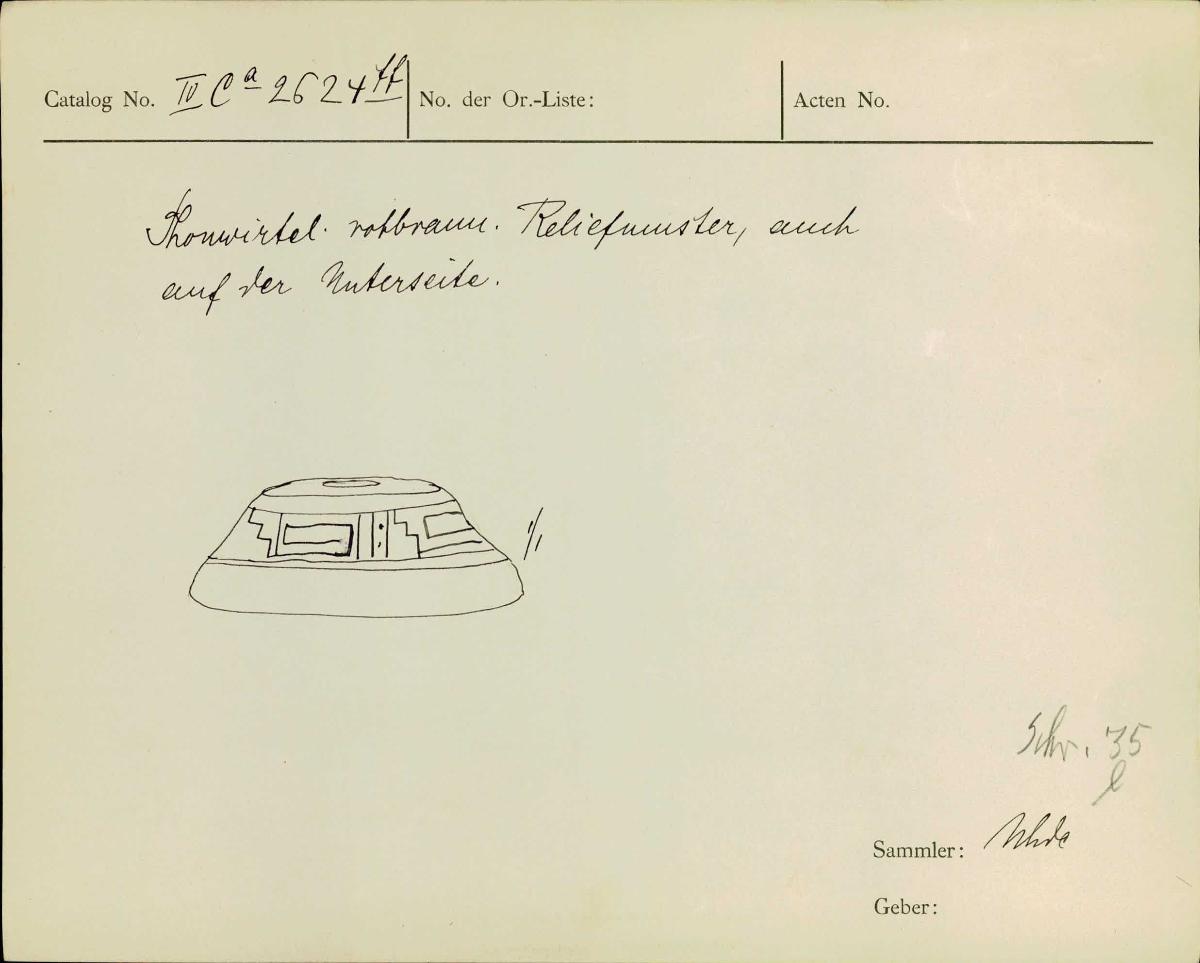 Catalog No. IV Ca 2624 ff No. der Or.-Liste: Acten No.
Thonwirtel. rotbraun. Reliefmuster, auch
auf der Unterseite.
1/1
Schr. 35
l
Sammler: Uhde
Geber: